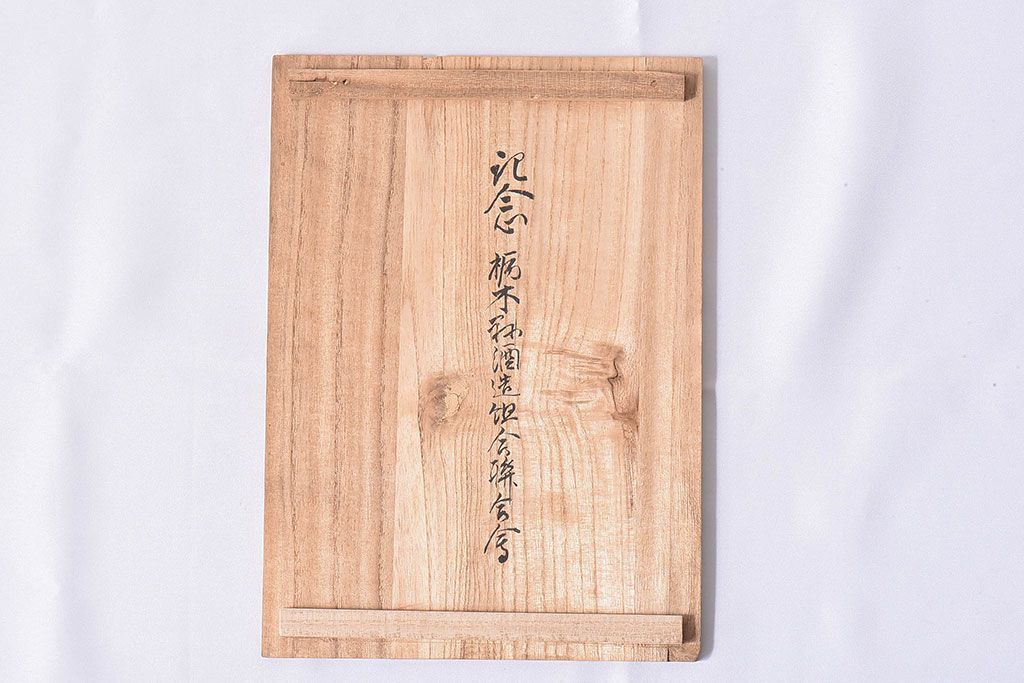 記念 栃木縣酒造組合聯合會